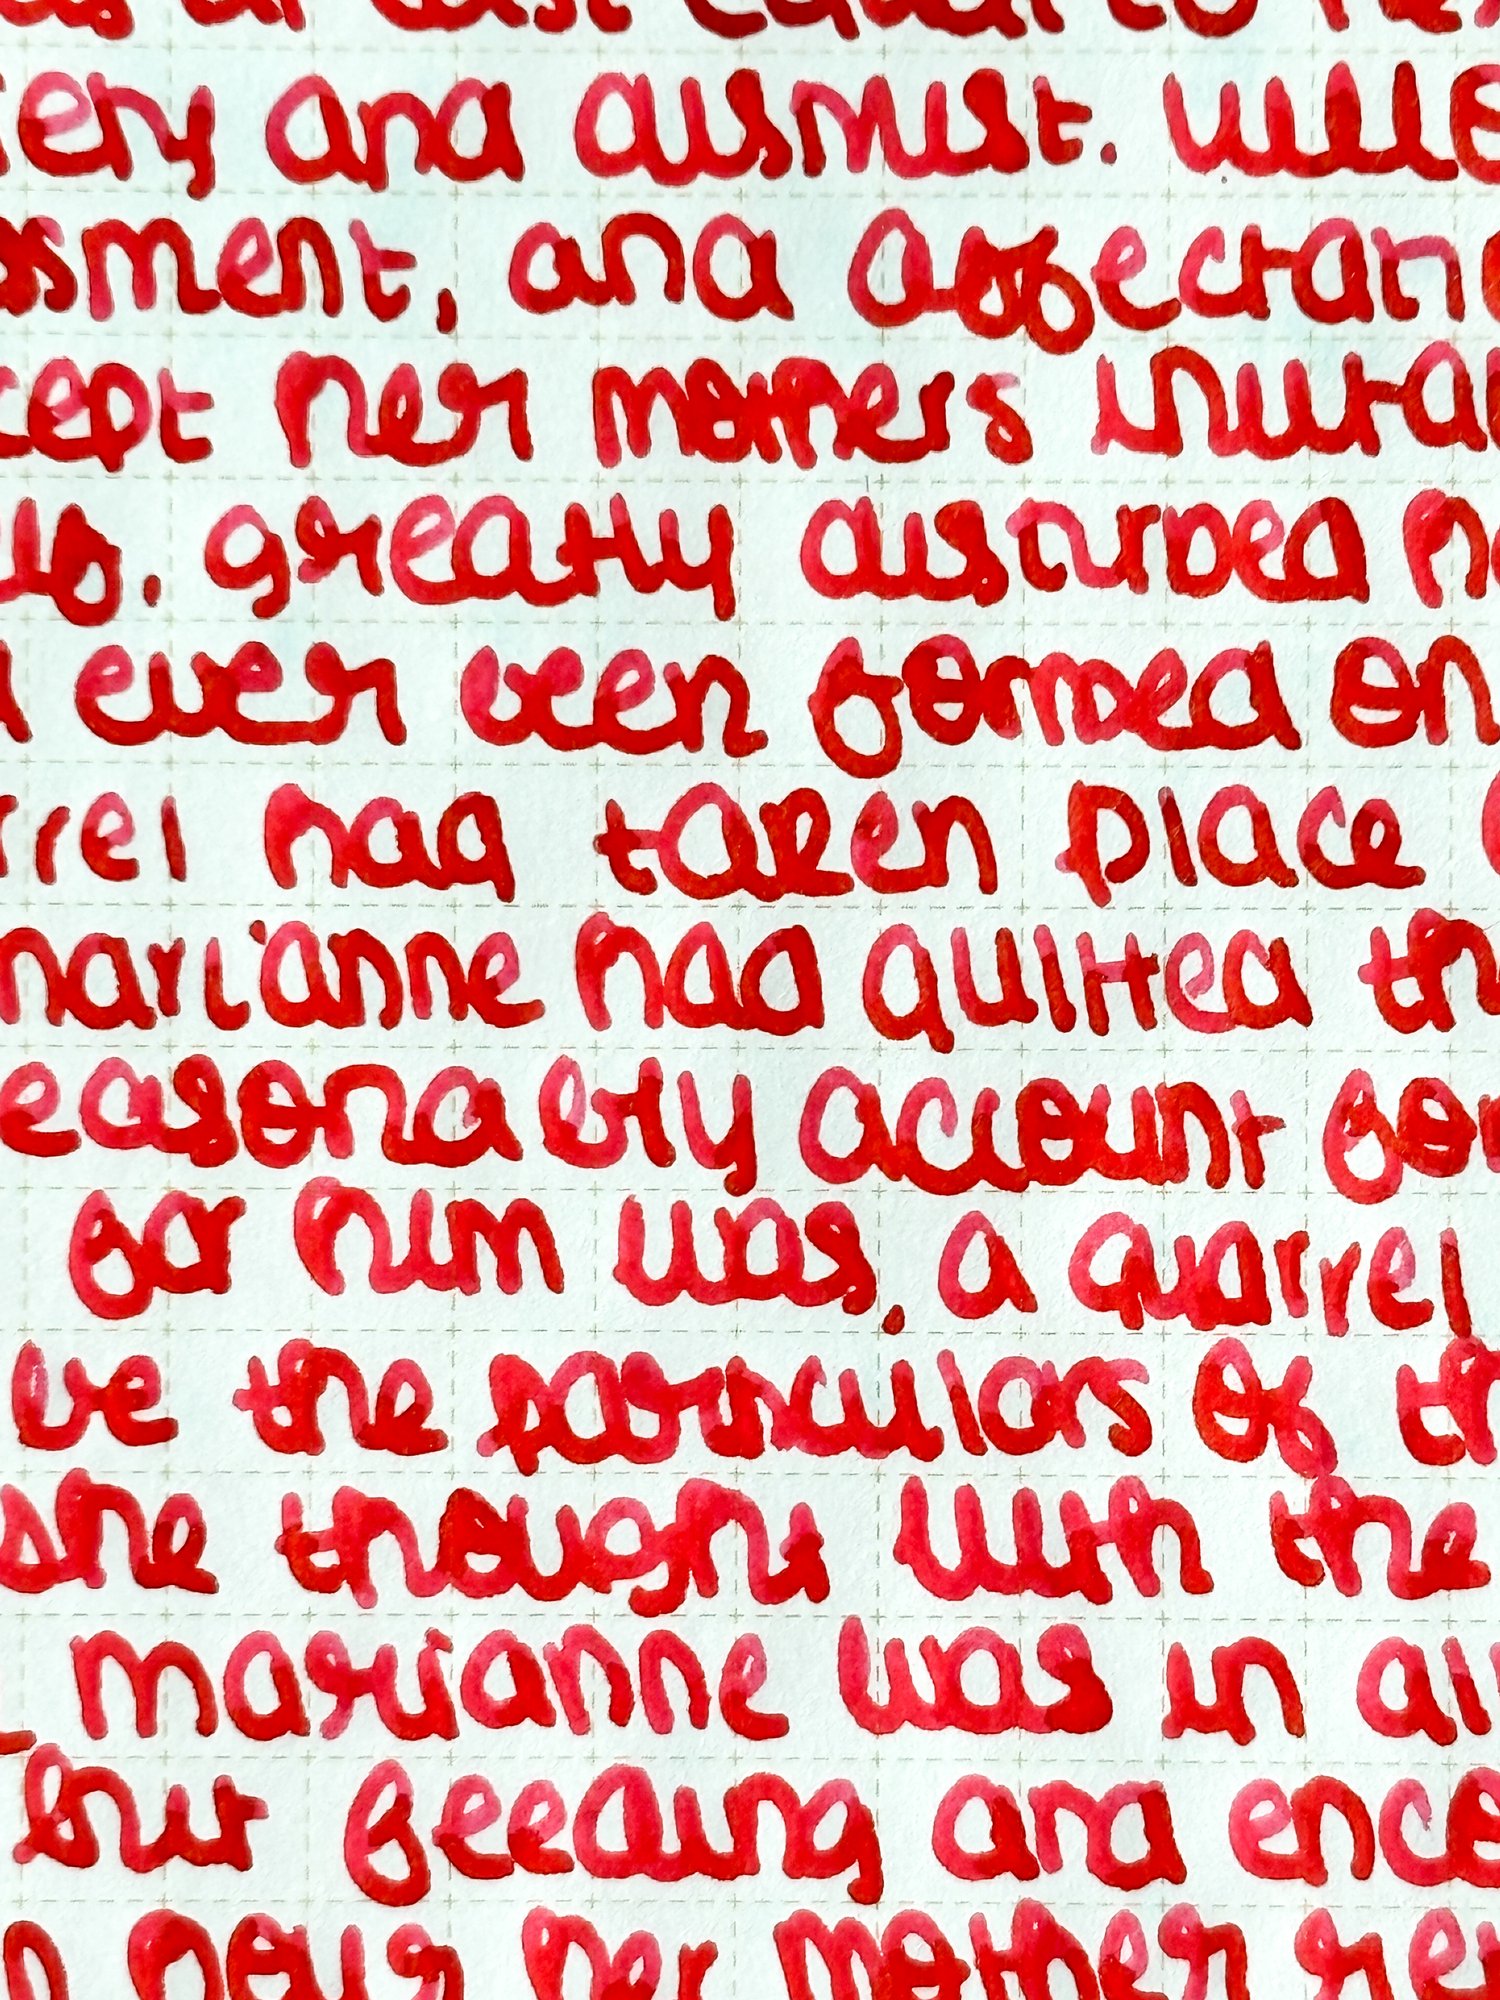 at least equal to
ery and dismist. wille
ssment, and affectatio
cept her mothers invita
greatly disturbed he
d ever been formed on
rrel had taken place
marianne had quitted th
easonably account for
for him was, a quarrel
ve the particulars of th
she thought with the
marianne was in al
but feeding and enco
hour her mother re